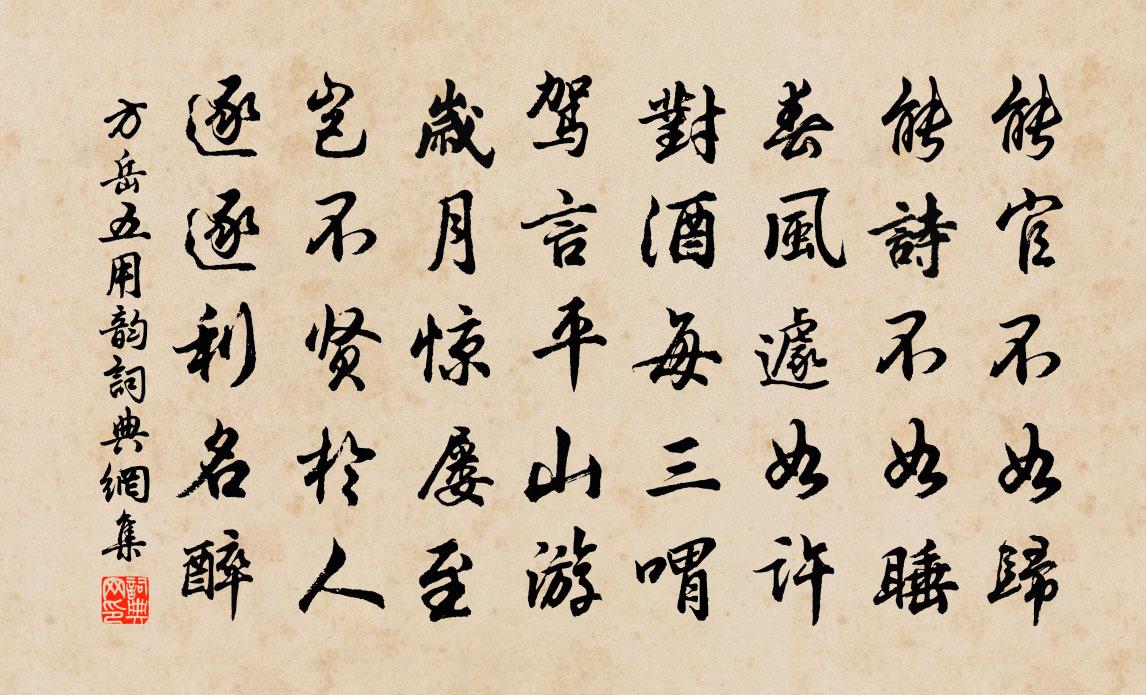 能官不如歸
能詩不如睡
春風遽如許
對酒每三喟
驾言平山游
歲月惊屡至
岂不贤於人
逐逐利名醉
方岳五用韵詞典網集
詞典网印